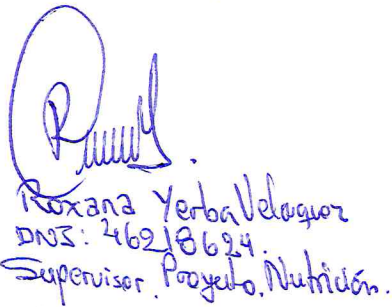 Roxana Yerba Velasquez
DNI: 46218624.
Supervisor. Proyecto. Nutrición.